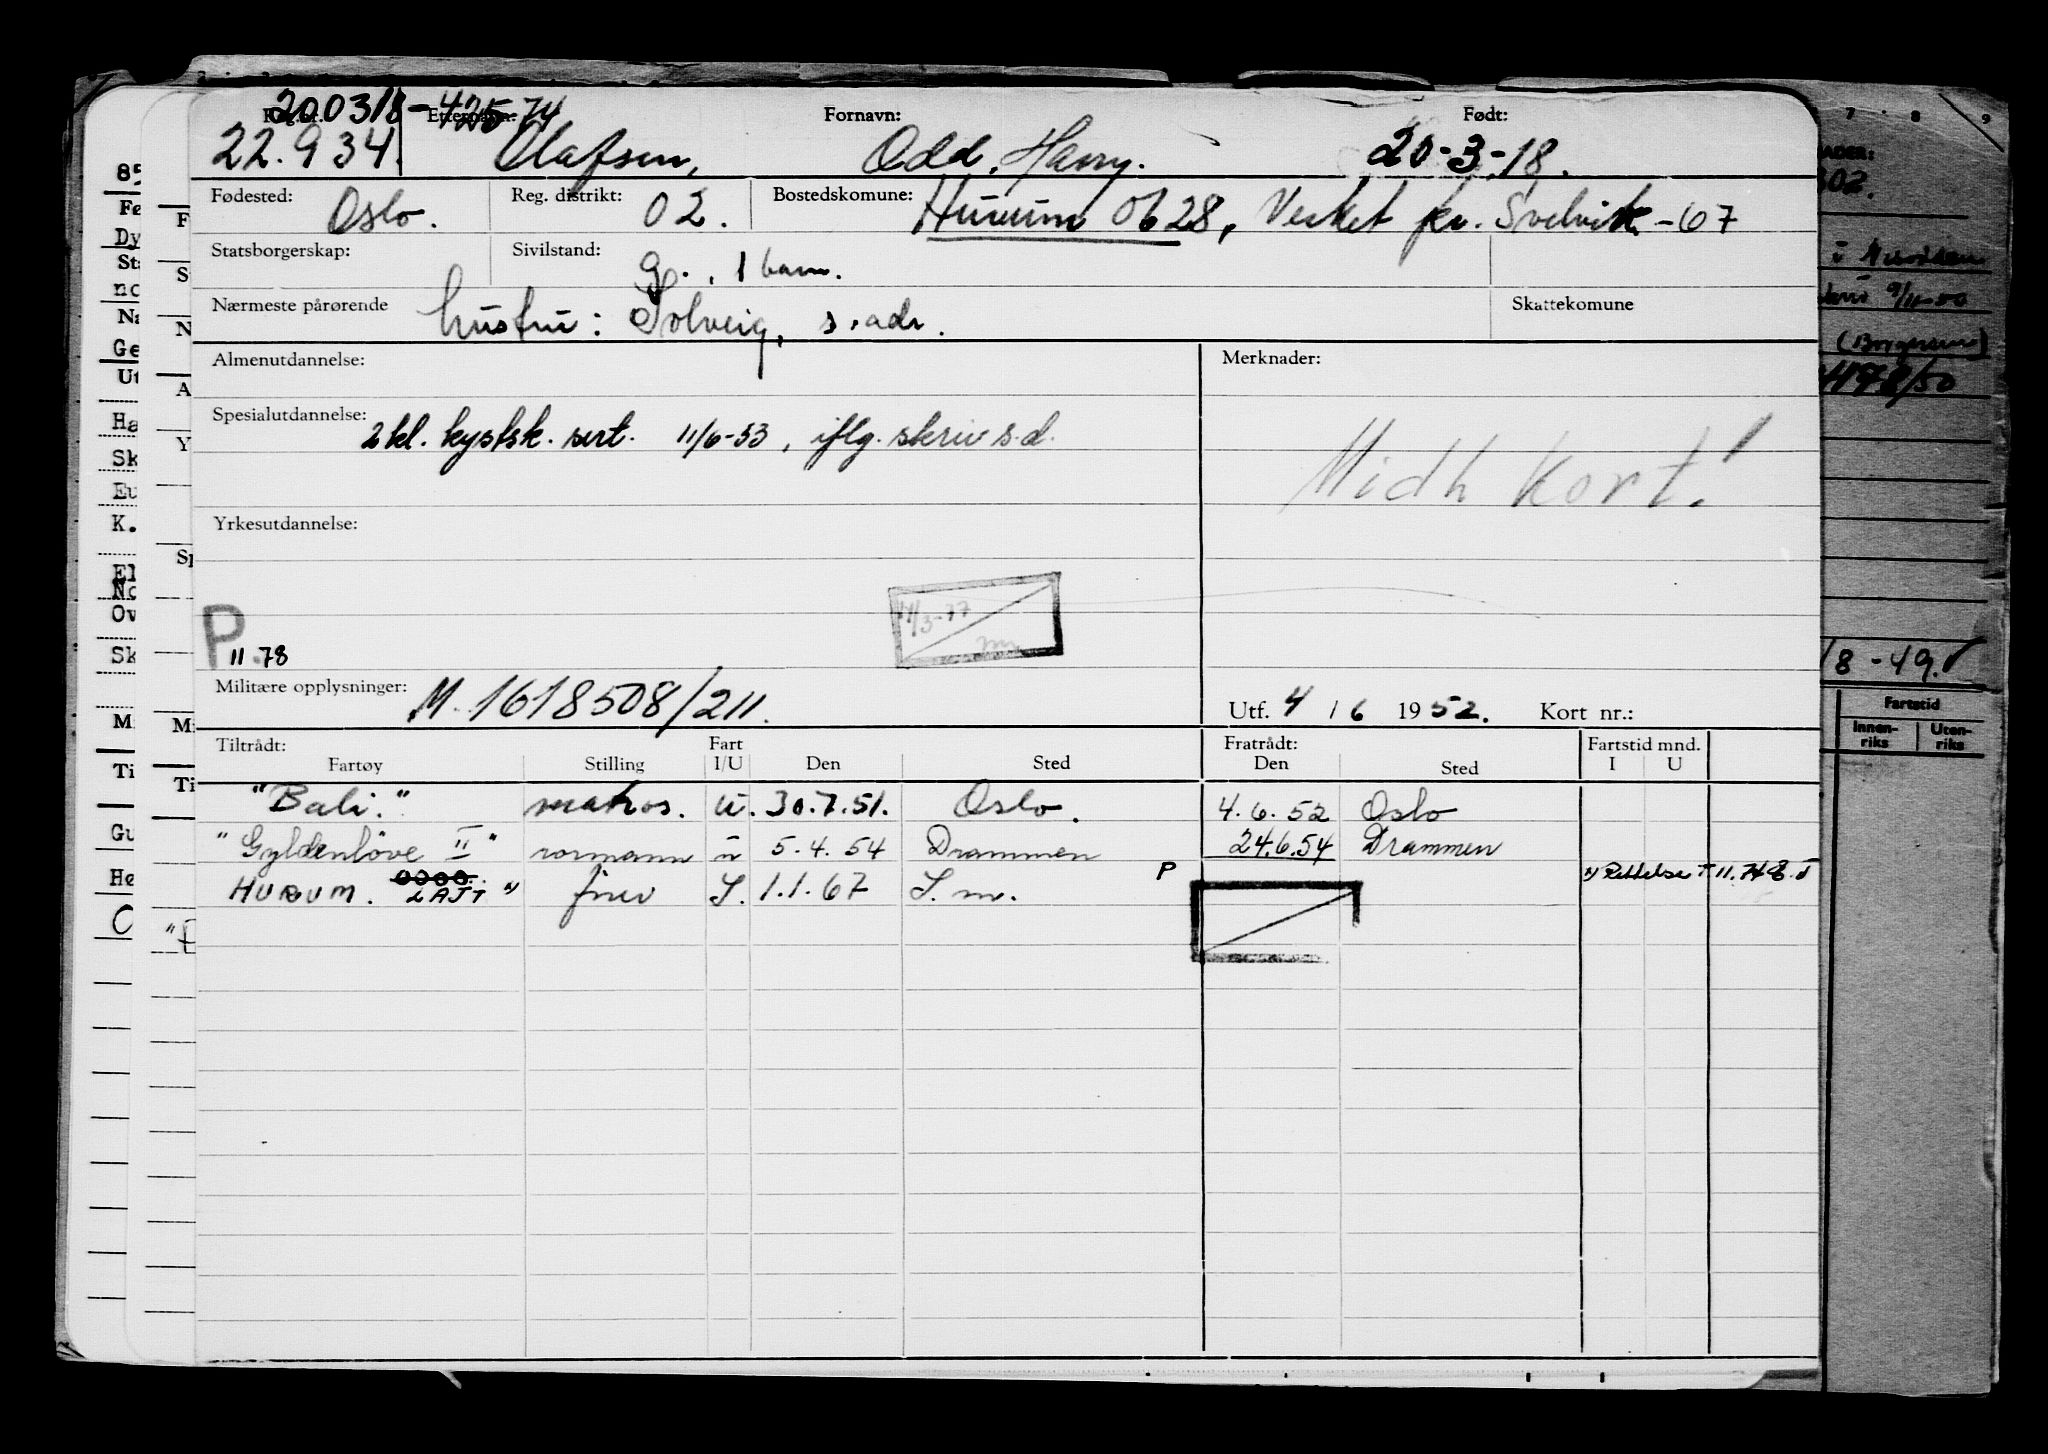 200318-42574
Etternavn: Fornavn: Født:
22.934. Olafsen, Odd, Harry. 20-3-18.
Fødested: Oslo. Reg. distrikt: 02. Bostedskomune: Hurum 0628, Verket pr. Svelvik -67
Statsborgerskap: Sivilstand: g., 1 barn.
Nærmeste pårørende hustru: Solveig, s. adr. Skattekomune
Almenutdannelse: Merknader:
Spesialutdannelse: 2 kl. kystsk. sert. 11/6-53, iflg. skriv s.d.
Midh kort!
Yrkesutdannelse:
11/3-77
P
11.78
Militære opplysninger: M. 1618508/211. Utf. 4 / 6 1952. Kort nr.:
Tiltrådt: Fart Fratrådt: Fartstid mnd.
Fartøy Stilling I/U Den Sted Den Sted I U
"Bali." matros. u. 30.7.51. Oslo. 4.6.52 Oslo
"Gyldenløve II" rormann u 5.4.54 Drammen 24.6.54 Drammen
HURUM. LAJT ") S. 1.1.67 S.m. P ") Rettelse T 11.748.
85
Fø
Dy
St
no
Na
Ge
Ut
Ha
Sk
Eu
K.
El
No
Ov
Sk
M
Ti
Gu
Hø
F
S
N
A
Y
Sp
Mi
Ti
7 8 9
ADER:
602.
9/11-50
498/50
/8-49.
Fartstid
Innen-
riks
Uten-
riks